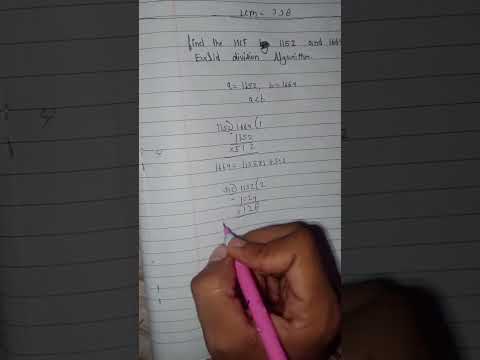 LCM = 228
find the HCF by 1152 and 1664
Euclid division Algorithm.
a = 1152, b = 1664
a < b
1152) 1664 (1
1152
512
1664 = 1152 x 1 + 512
512) 1152 (2
- 1024
128